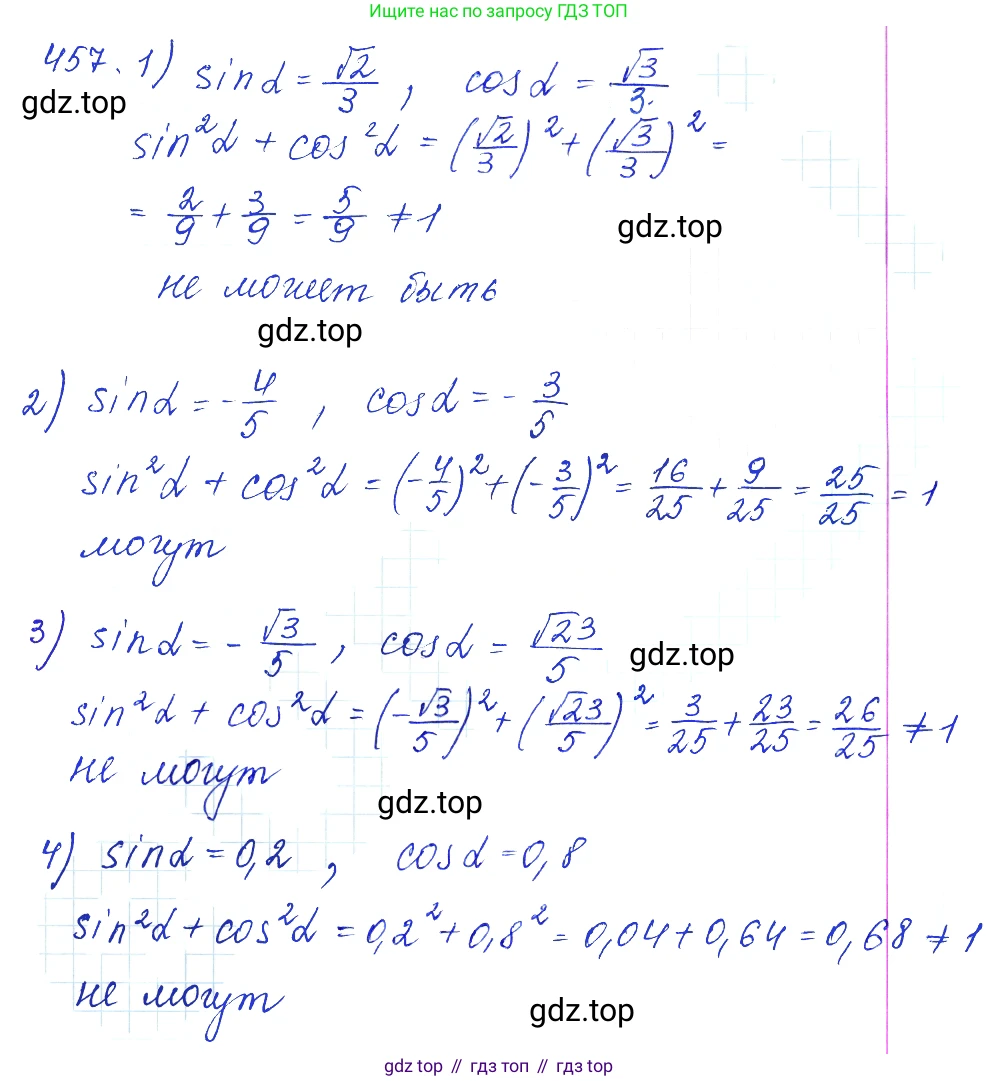 Ищите нас по запросу ГДЗ ТОП
457. 1) sin α = √2/3 , cos α = √3/3.
gdz.top
sin²α + cos²α = (√2/3)² + (√3/3)² =
= 2/9 + 3/9 = 5/9 ≠ 1
gdz.top
не может быть
gdz.top
2) sin α = -4/5 , cos α = -3/5
sin²α + cos²α = (-4/5)² + (-3/5)² = 16/25 + 9/25 = 25/25 = 1
могут
3) sin α = -√3/5 , cos α = √23/5
gdz.top
sin²α + cos²α = (-√3/5)² + (√23/5)² = 3/25 + 23/25 = 26/25 ≠ 1
не могут
gdz.top
4) sin α = 0,2 , cos α = 0,8
sin²α + cos²α = 0,2² + 0,8² = 0,04 + 0,64 = 0,68 ≠ 1
не могут
gdz.top
gdz top // гдз топ // gdz.top